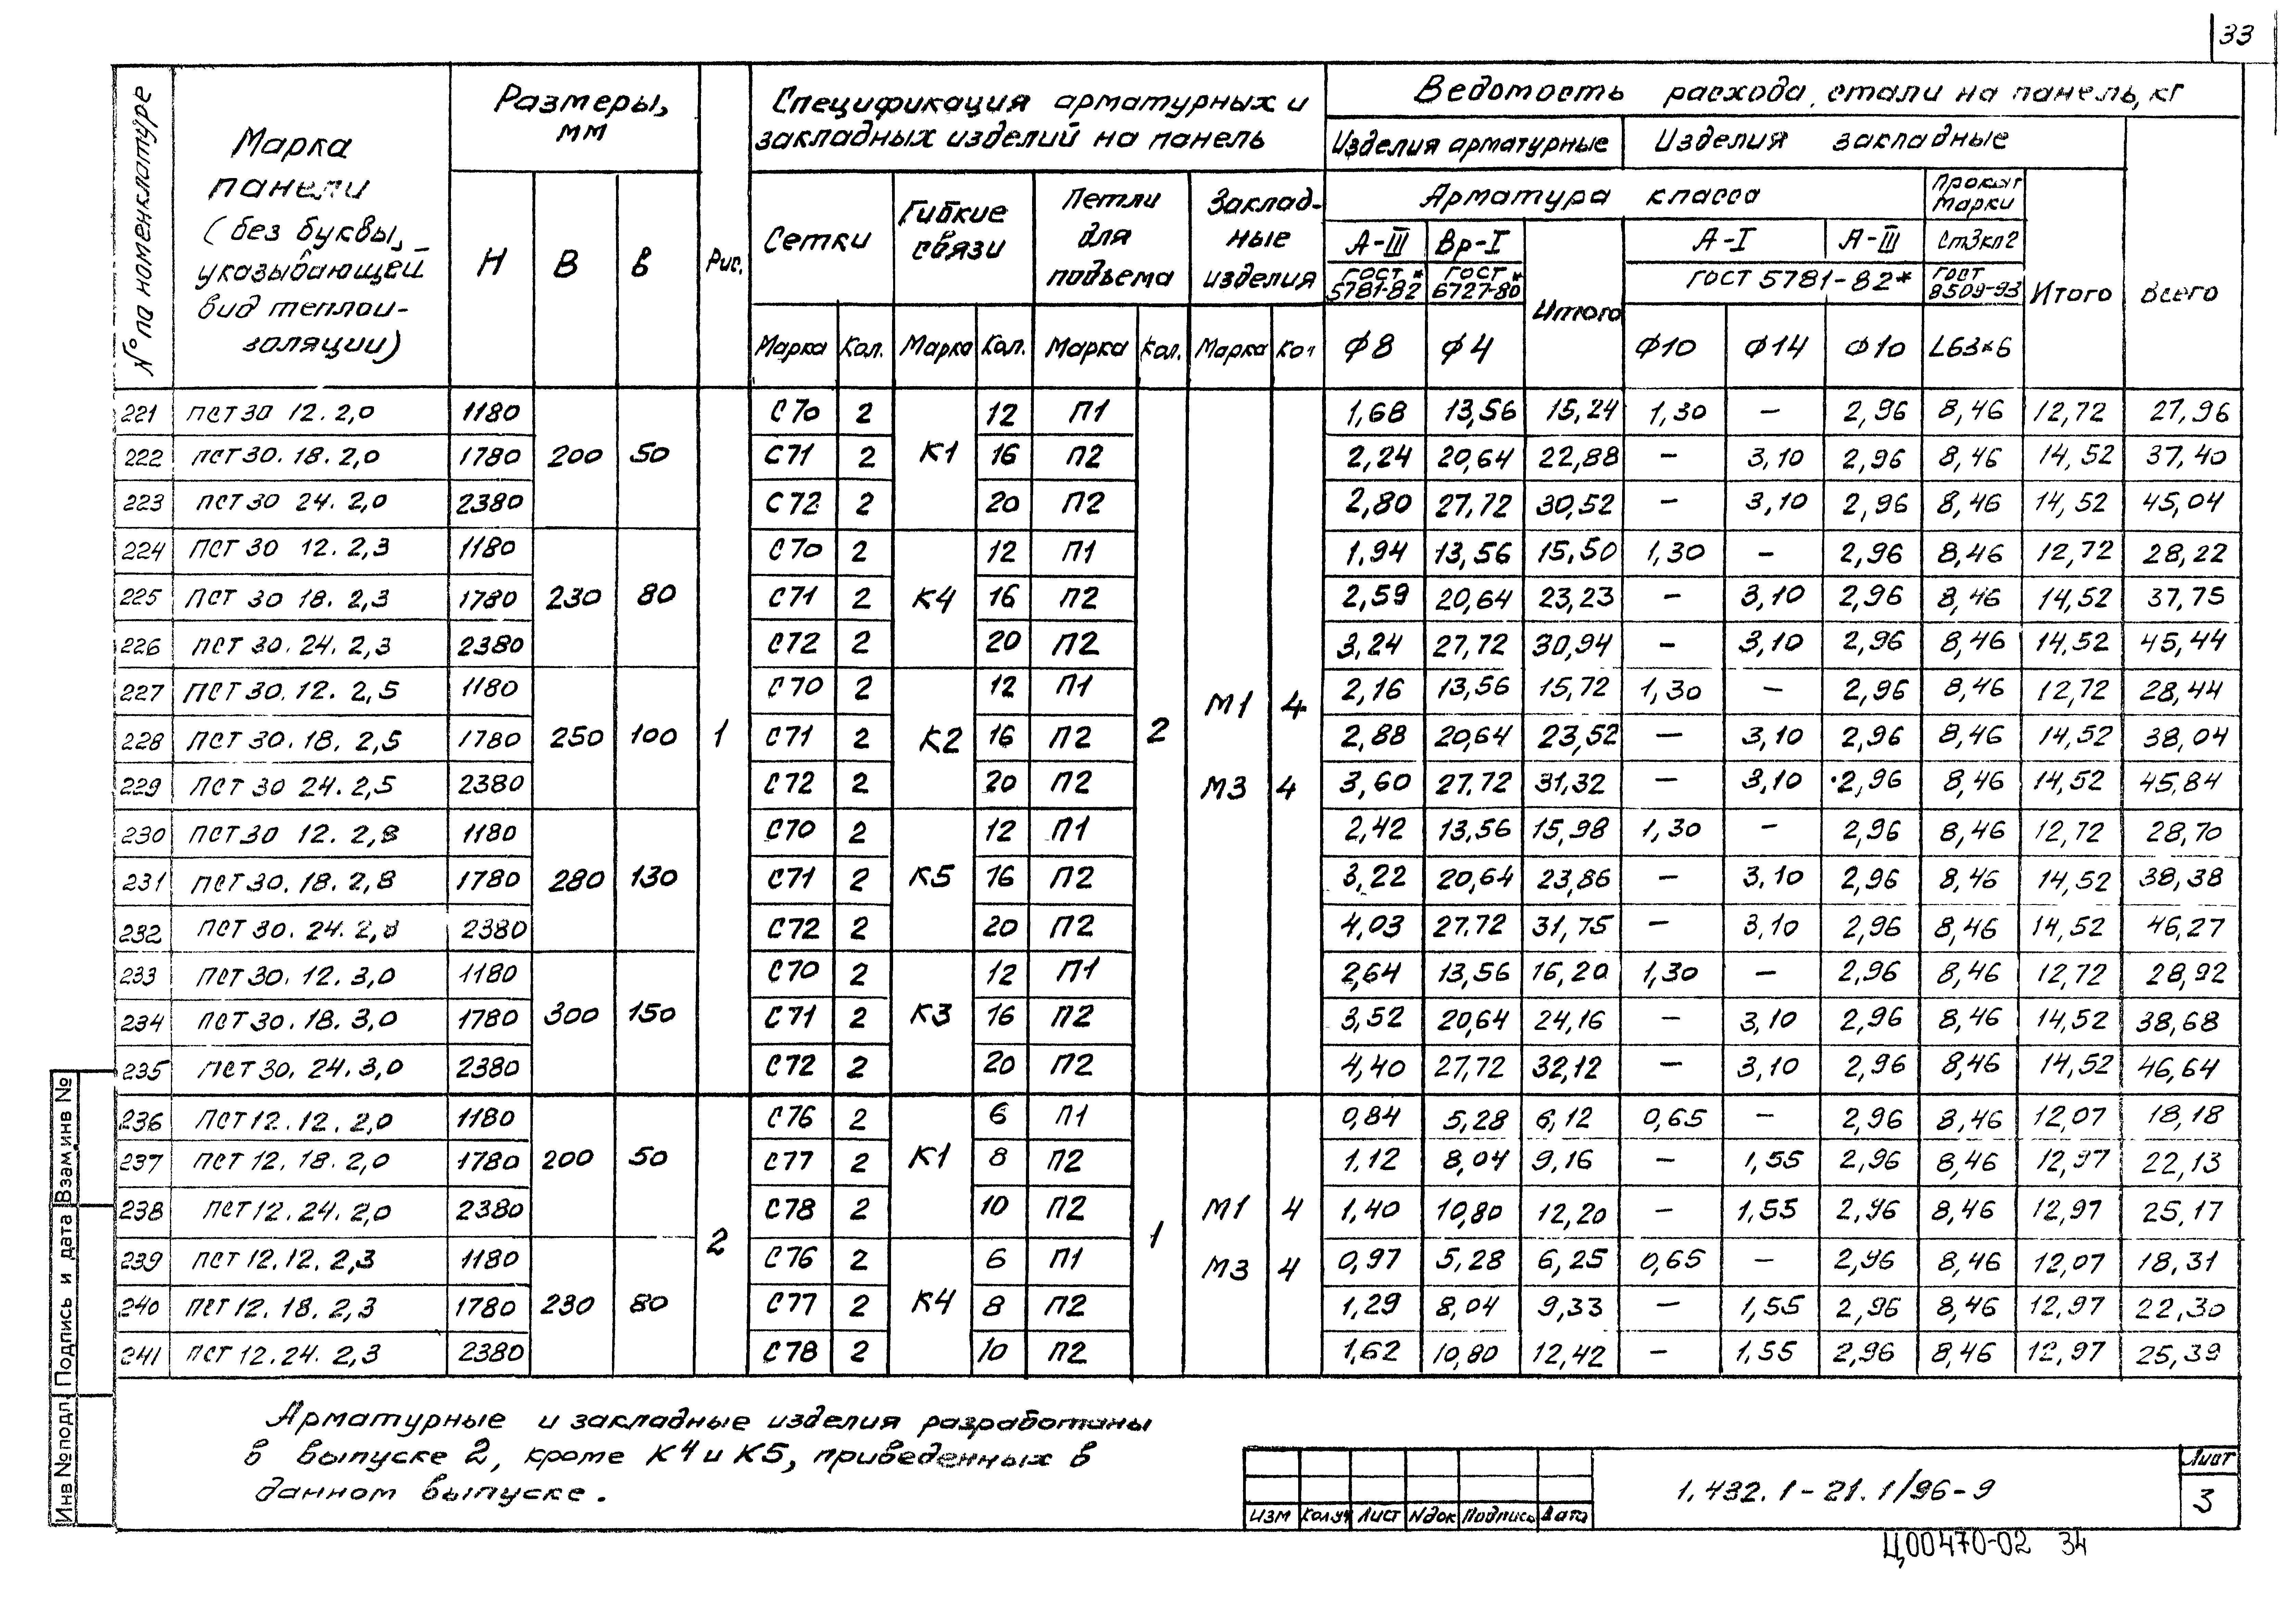 33
№ по номенклатуре
Марка панели (без буквы, указывающей вид теплоизоляции)
Размеры, мм
H B в
Рис.
Спецификация арматурных и закладных изделий на панель
Сетки
Гибкие связи
Петли для подъема
Закладные изделия
Марка Кол. Марка Кол. Марка Кол. Марка Кол
Ведомость расхода стали на панель, кг
Изделия арматурные Изделия закладные
Арматура класса
Прокат марки
А-III Вр-I А-I А-III Ст3кп2
ГОСТ 5781-82* ГОСТ 6727-80* Итого ГОСТ 5781-82* ГОСТ 8509-93 Итого Всего
Ф8 Ф4 Ф10 Ф14 Ф10 L63×6
221 ПСТ30 12. 2,0 1180 С70 2 12 П1 1,68 13,56 15,24 1,30 – 2,96 8,46 12,72 27,96
222 ПСТ30. 18. 2,0 1780 200 50 С71 2 К1 16 П2 2,24 20,64 22,88 – 3,10 2,96 8,46 14,52 37,40
223 ПСТ30 24. 2,0 2380 С72 2 20 П2 2,80 27,72 30,52 – 3,10 2,96 8,46 14,52 45,04
224 ПСТ 30 12. 2,3 1180 С70 2 12 П1 1,94 13,56 15,50 1,30 – 2,96 8,46 12,72 28,22
225 ПСТ 30 18. 2,3 1780 230 80 С71 2 К4 16 П2 2,59 20,64 23,23 – 3,10 2,96 8,46 14,52 37,75
226 ПСТ 30. 24. 2,3 2380 С72 2 20 П2 3,24 27,72 30,94 – 3,10 2,96 8,46 14,52 45,44
227 ПСТ 30. 12. 2,5 1180 С70 2 12 П1 М1 4 2,16 13,56 15,72 1,30 – 2,96 8,46 12,72 28,44
228 ПСТ 30. 18. 2,5 1780 250 100 1 С71 2 К2 16 П2 2 2,88 20,64 23,52 – 3,10 2,96 8,46 14,52 38,04
229 ПСТ 30 24. 2,5 2380 С72 2 20 П2 М3 4 3,60 27,72 31,32 – 3,10 2,96 8,46 14,52 45,84
230 ПСТ30 12. 2,8 1180 С70 2 12 П1 2,42 13,56 15,98 1,30 – 2,96 8,46 12,72 28,70
231 ПСТ30. 18. 2,8 1780 280 130 С71 2 К5 16 П2 3,22 20,64 23,86 – 3,10 2,96 8,46 14,52 38,38
232 ПСТ 30. 24. 2,8 2380 С72 2 20 П2 4,03 27,72 31,75 – 3,10 2,96 8,46 14,52 46,27
233 ПСТ 30. 12. 3,0 1180 С70 2 12 П1 2,64 13,56 16,20 1,30 – 2,96 8,46 12,72 28,92
234 ПСТ30. 18. 3,0 1780 300 150 С71 2 К3 16 П2 3,52 20,64 24,16 – 3,10 2,96 8,46 14,52 38,68
235 ПСТ30. 24. 3,0 2380 С72 2 20 П2 4,40 27,72 32,12 – 3,10 2,96 8,46 14,52 46,64
236 ПСТ12. 12. 2,0 1180 С76 2 6 П1 0,84 5,28 6,12 0,65 – 2,96 8,46 12,07 18,18
237 ПСТ 12. 18. 2,0 1780 200 50 С77 2 К1 8 П2 1,12 8,04 9,16 – 1,55 2,96 8,46 12,97 22,13
238 ПСТ12. 24. 2,0 2380 2 С78 2 10 П2 1 М1 4 1,40 10,80 12,20 – 1,55 2,96 8,46 12,97 25,17
239 ПСТ 12. 12. 2,3 1180 С76 2 6 П1 М3 4 0,97 5,28 6,25 0,65 – 2,96 8,46 12,07 18,31
240 ПСТ 12. 18. 2,3 1780 230 80 С77 2 К4 8 П2 1,29 8,04 9,33 – 1,55 2,96 8,46 12,97 22,30
241 ПСТ 12. 24. 2,3 2380 С78 2 10 П2 1,62 10,80 12,42 – 1,55 2,96 8,46 12,97 25,39
Арматурные и закладные изделия разработаны
в выпуске 2, кроме К4 и К5, приведенных в
данном выпуске.
Инв № подл. Подпись и дата Взам инв №
Изм Кол.уч Лист Nдок Подпись Дата
1.432.1-21.1/96-9
Лист
3
Ц00470-02 34